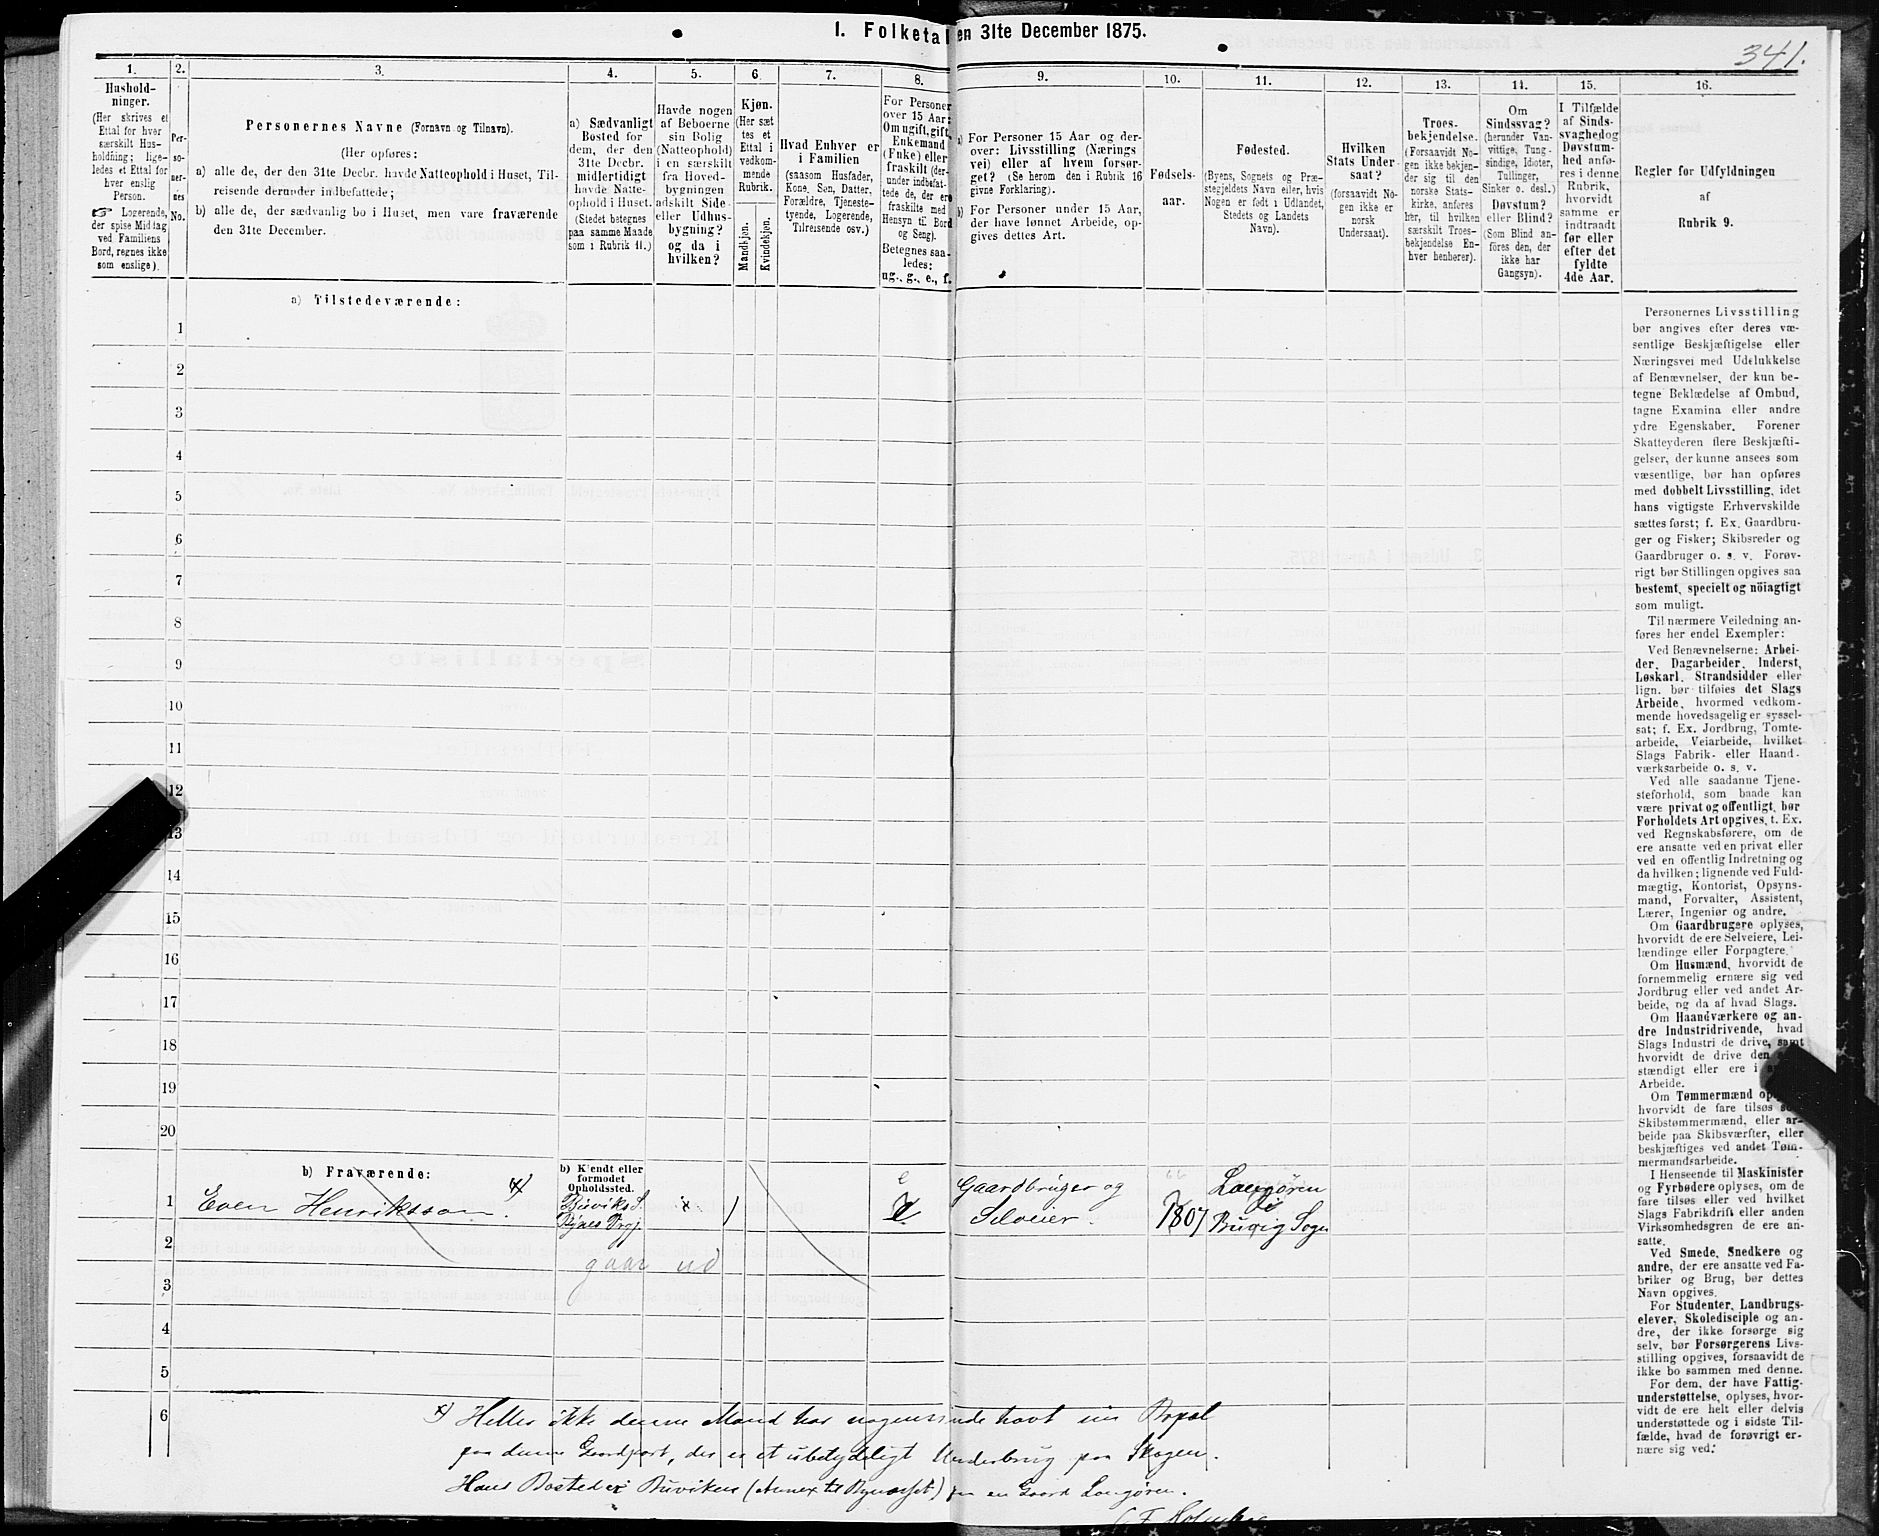 I. Folketal den 31te December 1875.
341.
1.
Hushold-
ninger.
(Her skrives et
Ettal for hver
særskilt Hus-
holdning; lige-
ledes et Ettal for
hver enslig
Person.
☞ Logerende,
der spise Middag
ved Familiens
Bord, regnes ikke
som enslige).
2.
Per-
so-
ner-
nes
No.
3.
Personernes Navne (Fornavn og Tilnavn).
(Her opføres:
a) alle de, der den 31te Decbr. havde Natteophold i Huset, Til-
reisende derunder indbefattede;
b) alle de, der sædvanlig bo i Huset, men vare fraværende
den 31te December.
4.
a) Sædvanligt
Bosted for
dem, der den
31te Decbr.
midlertidigt
havde Natte-
ophold i Huset.
(Stedet betegnes
paa samme Maade
som i Rubrik 11.)
5.
Havde nogen
af Beboerne
sin Bolig
(Natteophold)
i en særskilt
fra Hoved-
bygningen
adskilt Side-
eller Udhus-
bygning?
og da i
hvilken?
6.
Kjøn.
(Her sæt
tes et
Ettal i
vedkom-
mende
Rubrik.
Mandkjøn.
Kvindekjøn.
7.
Hvad Enhver er
i Familien
(saasom Husfader,
Kone, Søn, Datter,
Forældre, Tjeneste-
tyende, Logerende,
Tilreisende osv.)
8.
For Personer
over 15 Aar:
Om ugift, gift,
Enkemand
(Enke) eller
fraskilt (der-
under indbefat-
tede de, der ere
fraskilte med
Hensyn til Bord
og Seng).
Betegnes saa-
ledes:
ug., g., e., f.
9.
a) For Personer 15 Aar og der-
over: Livsstilling (Nærings
vei) eller af hvem forsør-
get? (Se herom den i Rubrik 16
givne Forklaring).
b) For Personer under 15 Aar,
der have lønnet Arbeide, op-
gives dettes Art.
10.
Fødsels-
aar.
11.
Fødested.
(Byens, Sognets og Præ-
stegjeldets Navn eller, hvis
Nogen er født i Udlandet,
Stedets og Landets
Navn).
12.
Hvilken
Stats Under-
saat?
(forsaavidt No-
gen ikke er
norsk
Undersaat).
13.
Troes-
bekjendelse.
(Forsaavidt No-
gen ikke bekjen-
der sig til den
norske Stats-
kirke, anføres
her, til hvilken
særskilt Troes-
bekjendelse En-
hver henhører).
14.
Om
Sindssvag?
(herunder Van-
vittige, Tung-
sindige, Idioter,
Tullinger,
Sinker o. desl.)
Døvstum?
eller Blind?
(Som Blind an-
føres den, der
ikke har
Gangsyn).
15.
I Tilfælde
af Sinds-
svaghed og
Døvstum-
hed anfø-
res i denne
Rubrik,
hvorvidt
samme er
indtraadt
før eller
efter det
fyldte
4de Aar.
16.
Regler for Udfyldningen
af
Rubrik 9.
a) Tilstedeværende:
1
2
3
4
5
6
7
8
9
10
11
12
13
14
15
16
17
18
19
20
Personernes Livsstilling
bør angives efter deres væ-
sentlige Beskjæftigelse eller
Næringsvei med Udelukkelse
af Benævnelser, der kun be-
tegne Beklædelse af Ombud,
tagne Examina eller andre
ydre Egenskaber. Forener
Skatteyderen flere Beskjæfti-
gelser, der kunne ansees som
væsentlige, bør han opføres
med dobbelt Livsstilling, idet
hans vigtigste Erhvervskilde
sættes først; f. Ex. Gaardbru-
ger og Fisker; Skibsreder og
Gaardbruger o. s. v. Forøv-
rigt bør Stillingen opgives saa
bestemt, specielt og nöiagtigt
som muligt.
Til nærmere Veiledning an-
føres her endel Exempler:
Ved Benævnelserne: Arbei-
der, Dagarbeider, Inderst,
Løskarl, Strandsidder eller
lign. bør tilføies det Slags
Arbeide, hvormed vedkom-
mende hovedsagelig er syssel-
sat; f. Ex. Jordbrug, Tomte-
arbeide, Veiarbeide, hvilket
Slags Fabrik- eller Haand-
værksarbeide o. s. v.
Ved alle saadanne Tjene-
steforhold, som baade kan
være privat og offentligt, bør
Forholdets Art opgives, t. Ex.
ved Regnskabsførere, om de
ere ansatte ved en privat eller
ved en offentlig Indretning og
da hvilken; lignende ved Fuld-
mægtig, Kontorist, Opsyns-
mand, Forvalter, Assistent,
Lærer, Ingeniør og andre.
Om Gaardbrugere oplyses,
hvorvidt de ere Selveiere, Lei-
lændinge eller Forpagtere.
Om Husmænd, hvorvidt de
fornemmelig ernære sig ved
Jordbrug eller ved andet Ar-
beide, og da af hvad Slags.
Om Haandværkere og an-
dre Industridrivende, hvad
Slags Industri de drive, samt
hvorvidt de drive den
stændigt eller ere i
Arbeide.
Om Tømmermænd
hvorvidt de fare tilsøs
Skibstømmermænd, eller ar-
beide paa Skibsværfter, eller
beskjæftiges ved andet Tøm-
mermandsarbeide.
I Henseende til Maskinister
og Fyrbødere oplyses, om de
fare tilsøs eller ved hvilket
Slags Fabrikdrift eller anden
Virksomhedsgren de ere an-
satte.
Ved Smede, Snedkere og
andre, der ere ansatte ved Fa-
briker og Brug, bør dettes
Navn opgives.
For Studenter, Landbrugs-
elever, Skoledisciple og an-
dre, der ikke forsørge sig
selv, bør Forsørgerens Livs-
stilling opgives, forsaavidt de
ikke bo sammen med denne.
For dem, der have Fattig-
understøttelse, oplyses, hvor-
vidt de ere helt eller delvis
understøttede og i sidste Til-
fælde, hvad de forøvrigt er-
nære sig ved.
b) Fraværende:
b) Kjendt eller
formodet
Opholdssted.
1 Even Henriksson. x) Buviks S. x 1 e Gaardbruger og Selveier. 1807 Langøren
Bynes Prgj. Buvig Sogn
2
gaar ud
3
4
5
6
x) Heller ikke denne Mand har nogensinde havt sin Bopæl
paa denne Gaardpart, der er et ubetydeligt Underbrug paa Skogen.
Hans Bosted er Buviken (Annex til Bynæsset) paa en Gaard Langøren.